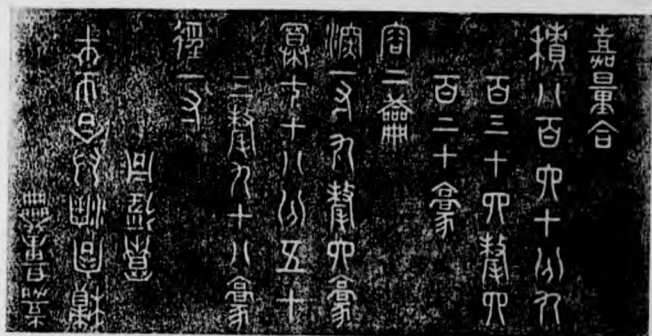 嘉量合
積八百六十分九
百三十四釐四
百二十毫
容二龠
深一寸九釐六毫
冪七十八分五十
三釐九十八毫
徑一寸
嘉量龠
冪徑同